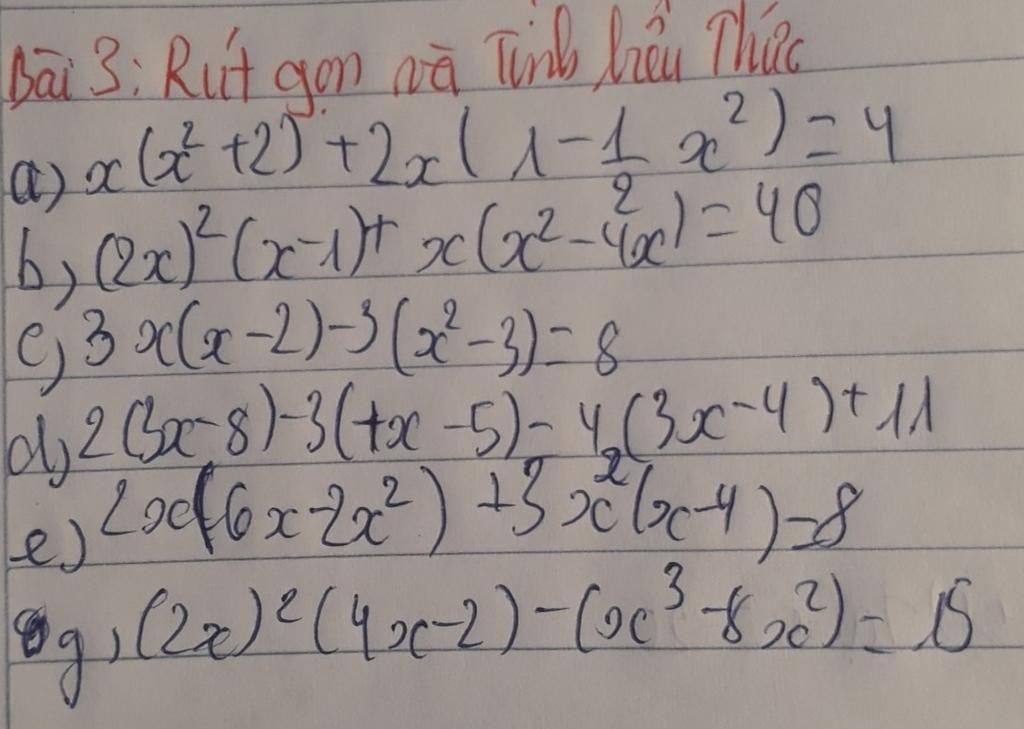 Bài 3: Rút gọn và Tính biểu Thức
a) x(x² + 2) + 2x(1 - 1/2 x²) = 4
b) (2x)²(x-1) + x(x² - 4x) = 40
c) 3x(x - 2) - 3(x² - 3) = 8
d) 2(3x - 8) - 3(+x - 5) = 4(3x - 4) + 11
e) 2x(6x - 2x²) + 3x²(x - 4) = 8
g) (2x)²(4x - 2) - (x³ - 8x²) = 15